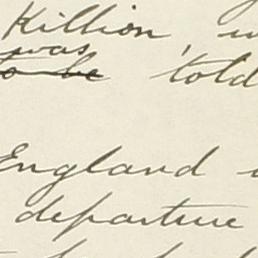 Killion
was
to be told
England
departure